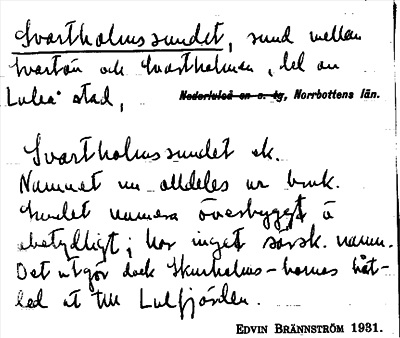 Svartholmssundet, sund mellan
Svartön och Svartholmen, del av
Luleå stad, Nederluleå sn o. tg, Norrbottens län.
Svartholmssundet ek.
Namnet nu alldeles ur bruk.
Sundet numera överbyggt å
obetydligt; har inget särsk. namn.
Det utgör dock Skurholms-hornes båt-
led ut till Lulfjärden.
EDVIN BRÄNNSTRÖM 1931.